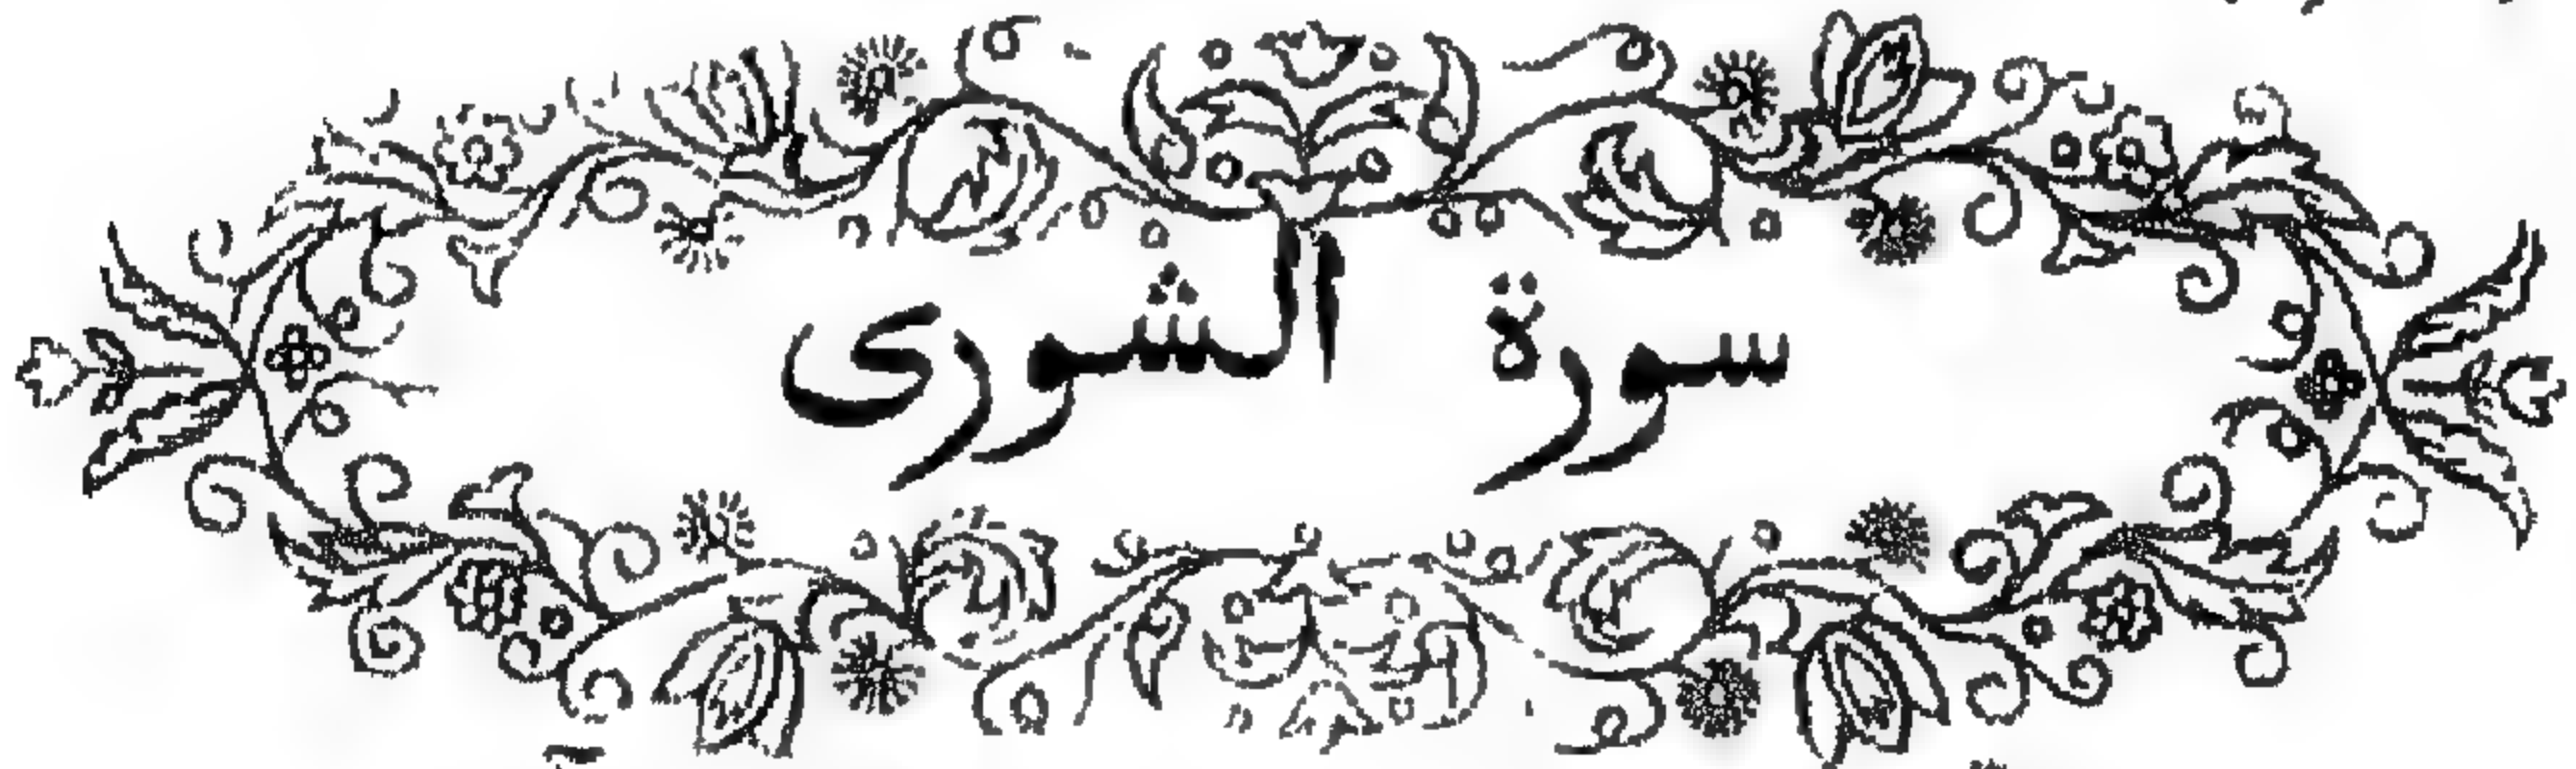 سورة الشورى